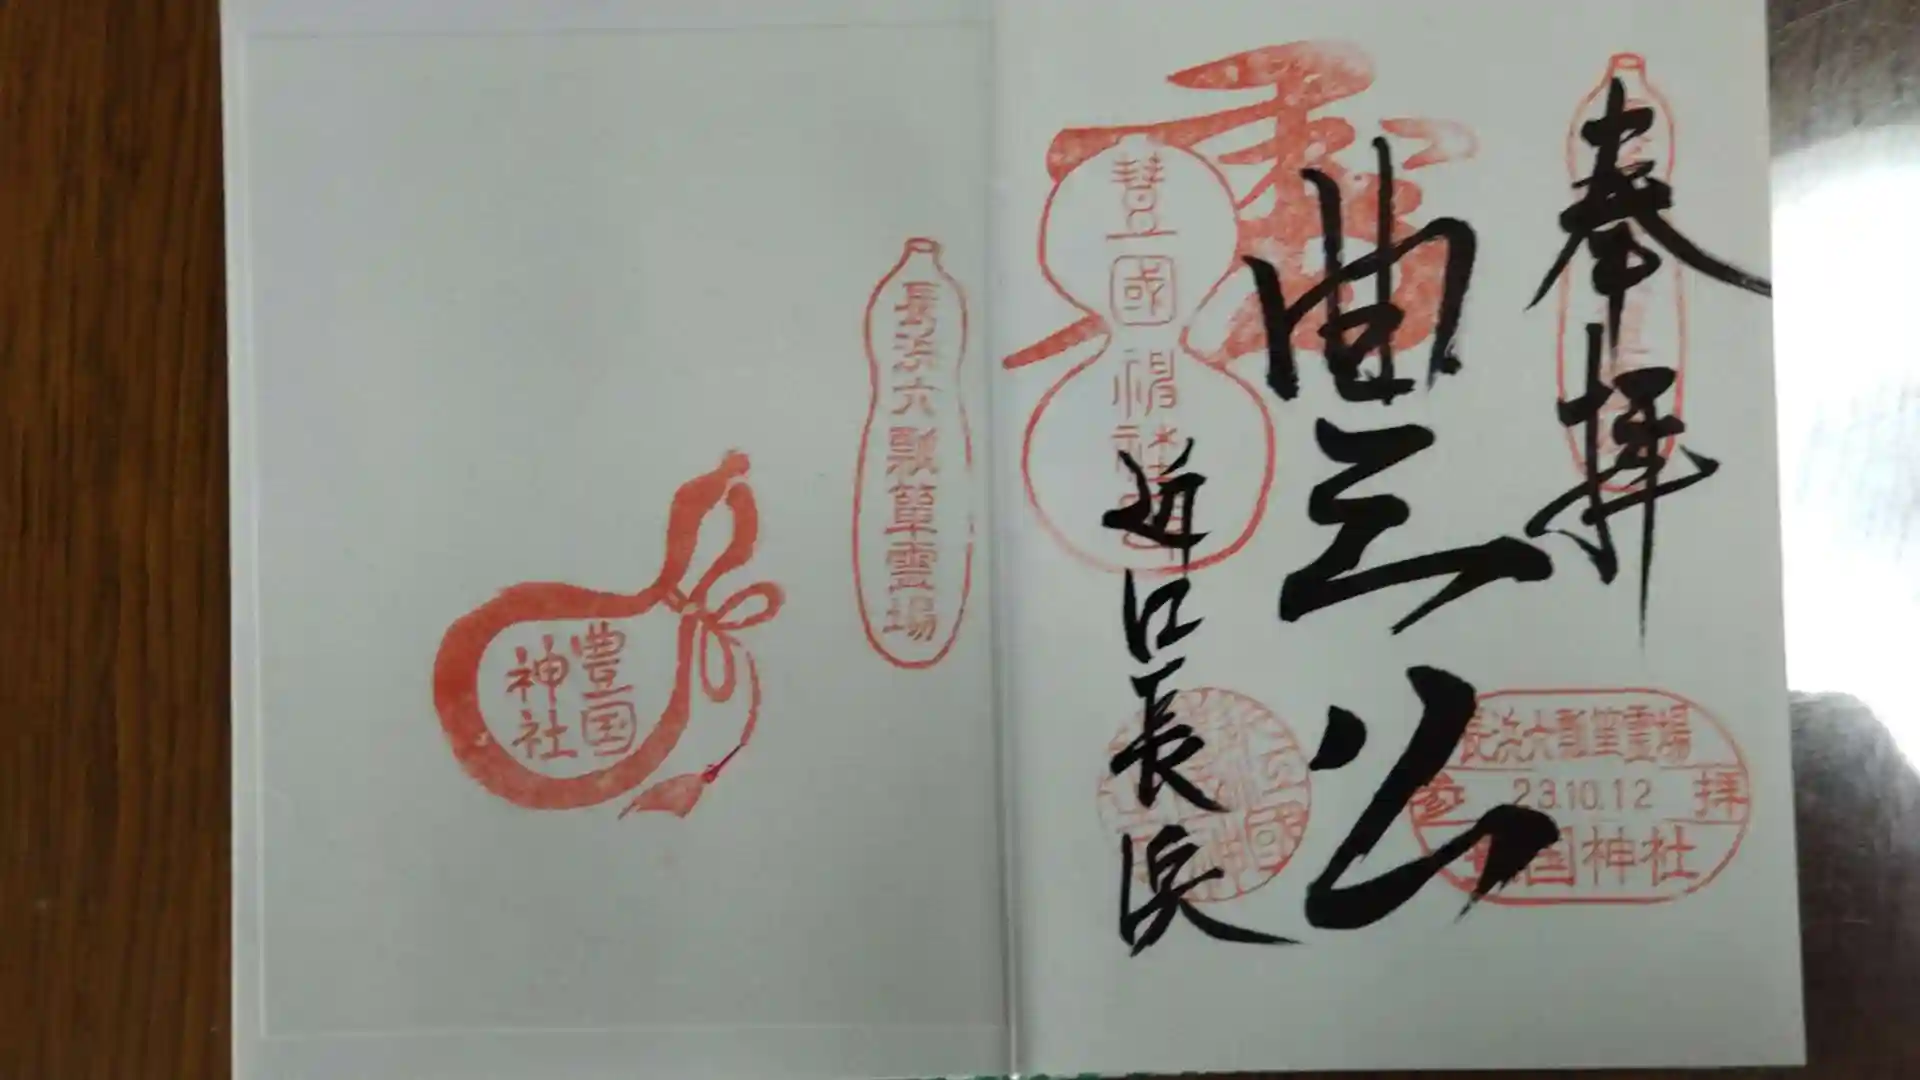 奉拝
豊公
近江長浜
豊國神社
長浜六瓢箪霊場
参 23.10.12 拝
国神社
長浜六瓢箪霊場
豊国
神社